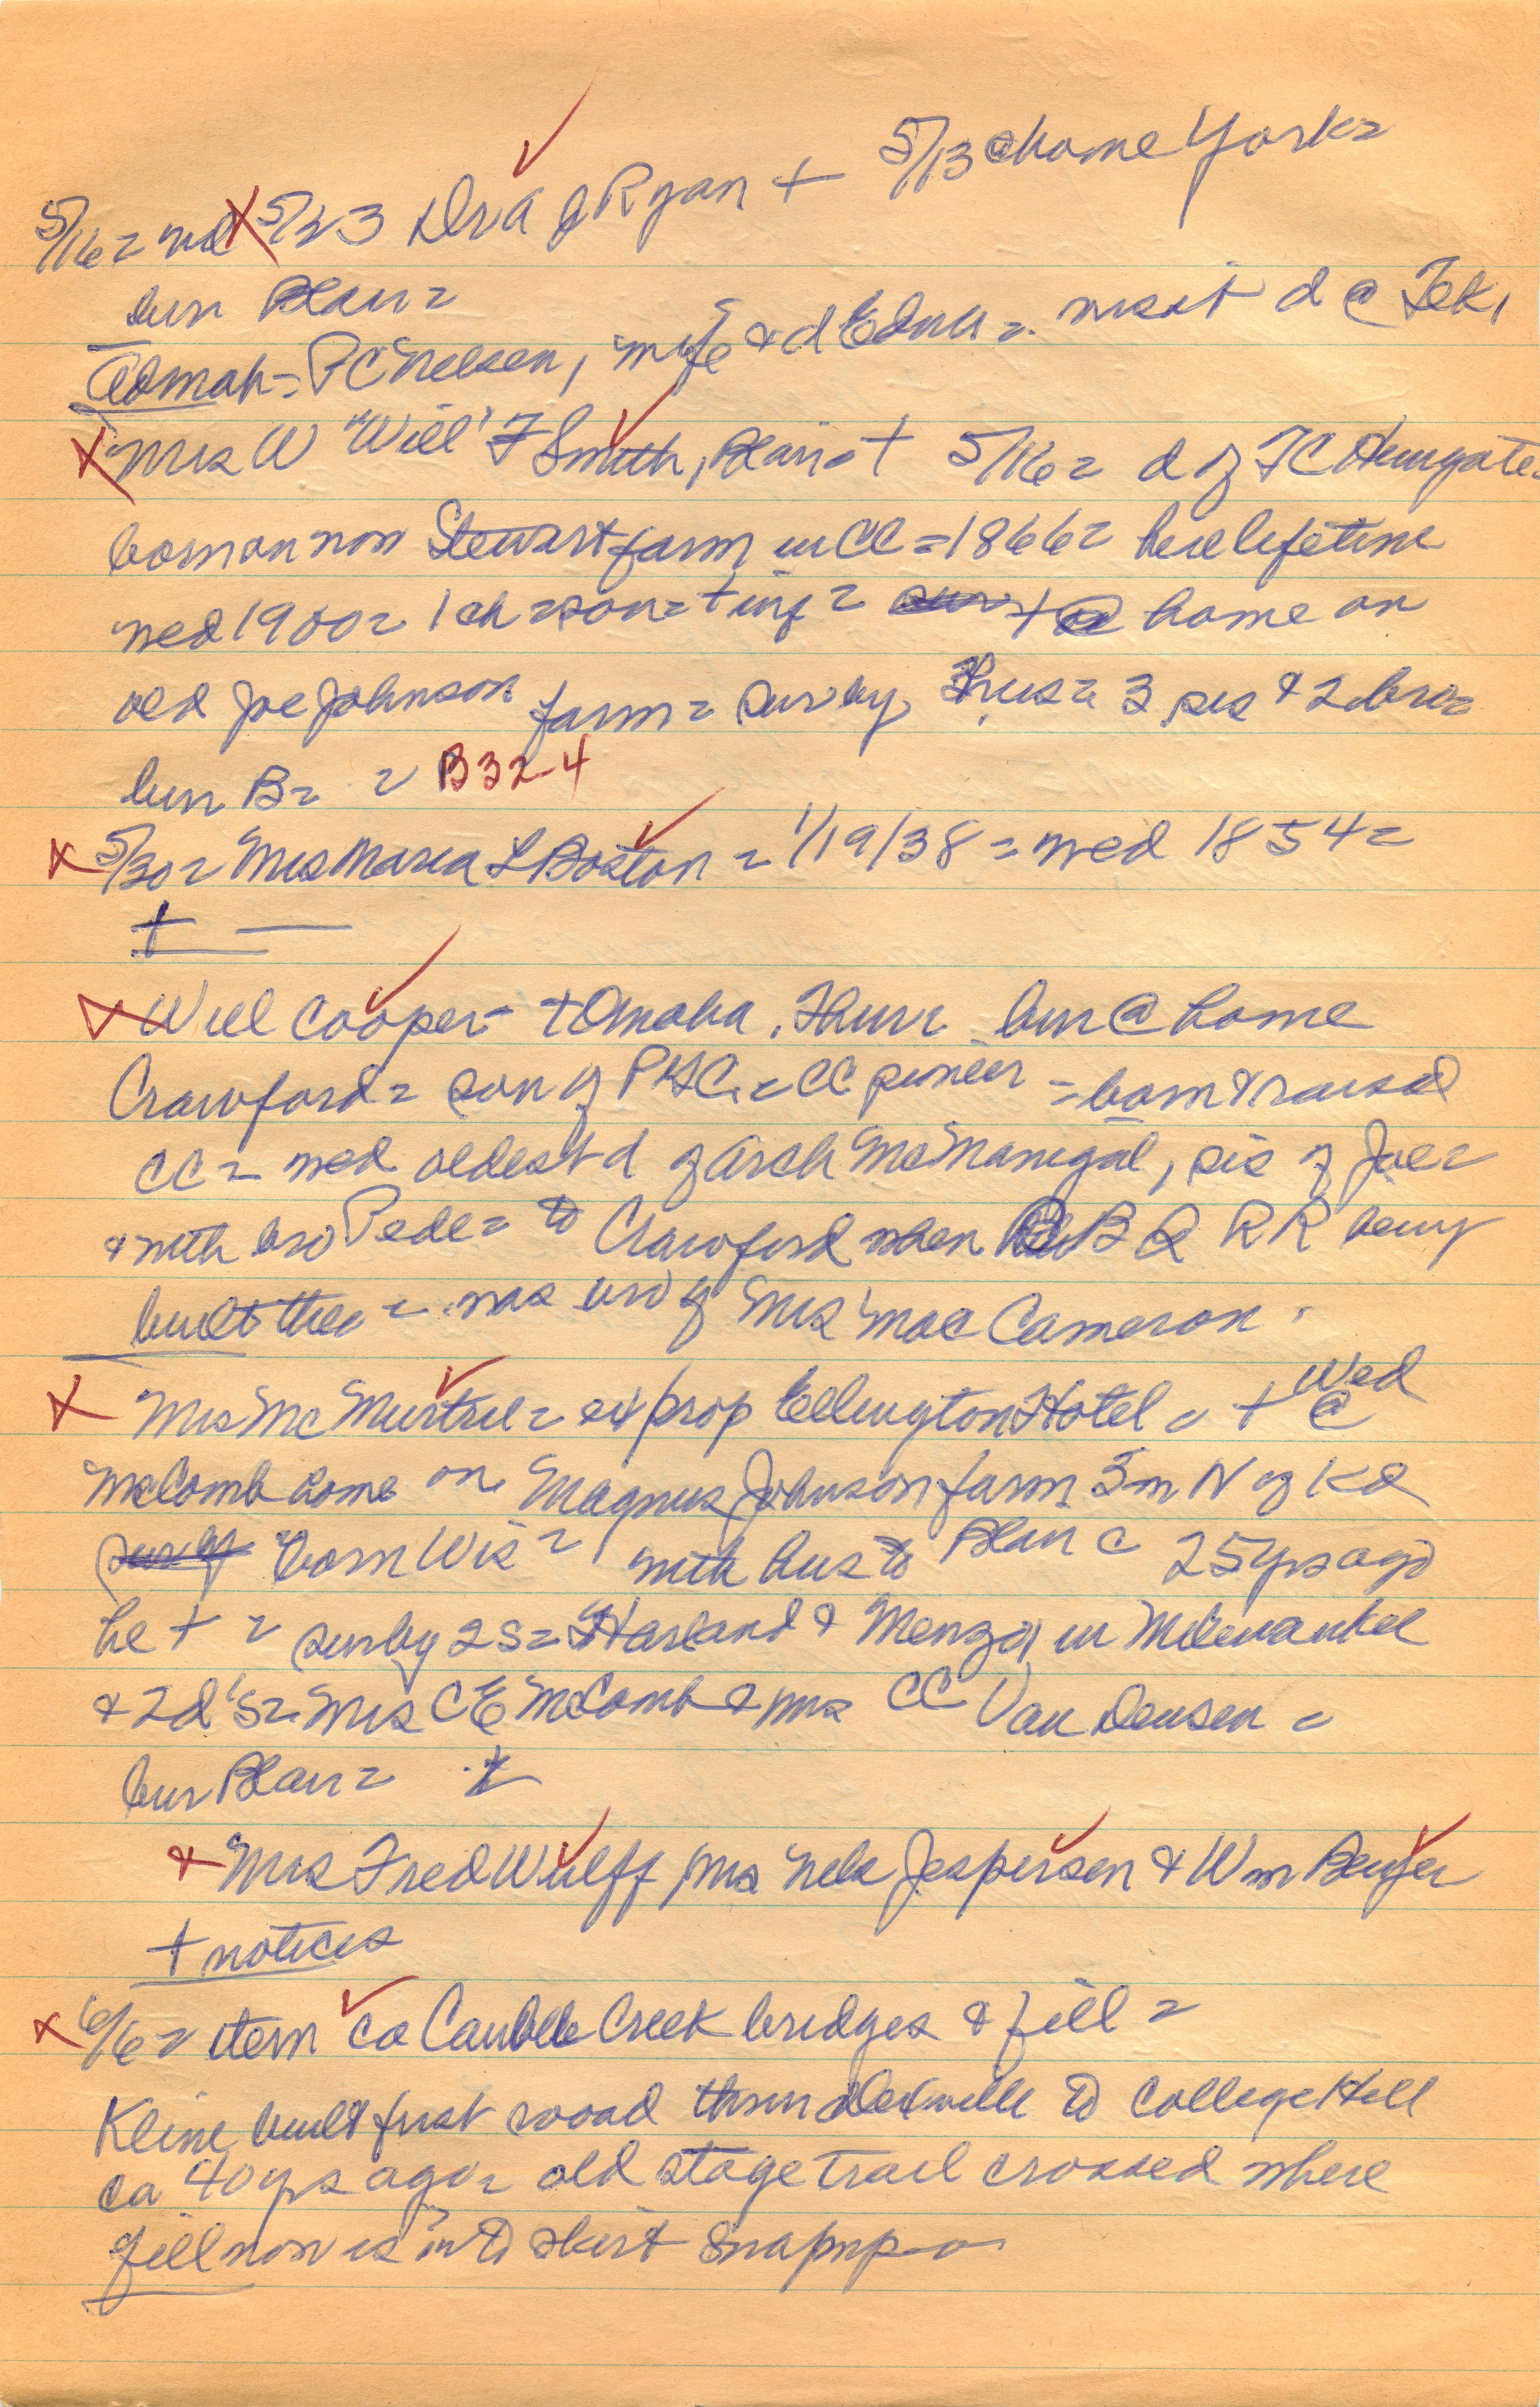 5/16 = nd X 5/23 Dr A J Ryan + 5/13 @ home York =
bur Blair =
Admah - P C Nelsen, wife & d Edna = visit d @ Tek,
X Mrs W "Will" F Smith, Blair = + 5/16 = d of F C Hungate =
born on now Stewart farm in CC = 1866 = here lifetime
wed 1900 = 1 ch = son = + inf = + @ home on
old Joe Johnson farm = sur by hus = 3 sis & 2 bro =
bur B = = B32-4
X 5/30 = Mrs Maria L Boston = 1/19/38 = wed 1854 =
+ —
X Will Cooper - + Omaha, Thur = bur @ home
Crawford = son of P G C, = CC pioneer = born & raised
CC = wed oldest d of Arch McManigal, sis of Joe =
& with bro Pede = to Crawford when B Q R R being
built there = was bro of Mrs Mac Cameron.
X Mrs McMurtrie = ex prop Ellington Hotel = + Wed @
McComb home on Magnus Johnson farm 5 m N of Kd
born Wis = with hus to Blair c 25 yrs ago
he + = sur by 2 s = Harland & Menzo, in Milwaukee
& 2 d's = Mrs C E McComb & Mrs C C Van Deusen =
bur Blair = +
X Mrs Fred Wulff, Mrs Nels Jespersen & Wm
+ notices
X 6/6 = item ca Cauble Creek bridges & fill =
Kline built first road thru to College Hill
ca 40 yrs ago = old stage trail crossed where
fill now is in to skirt swamp =